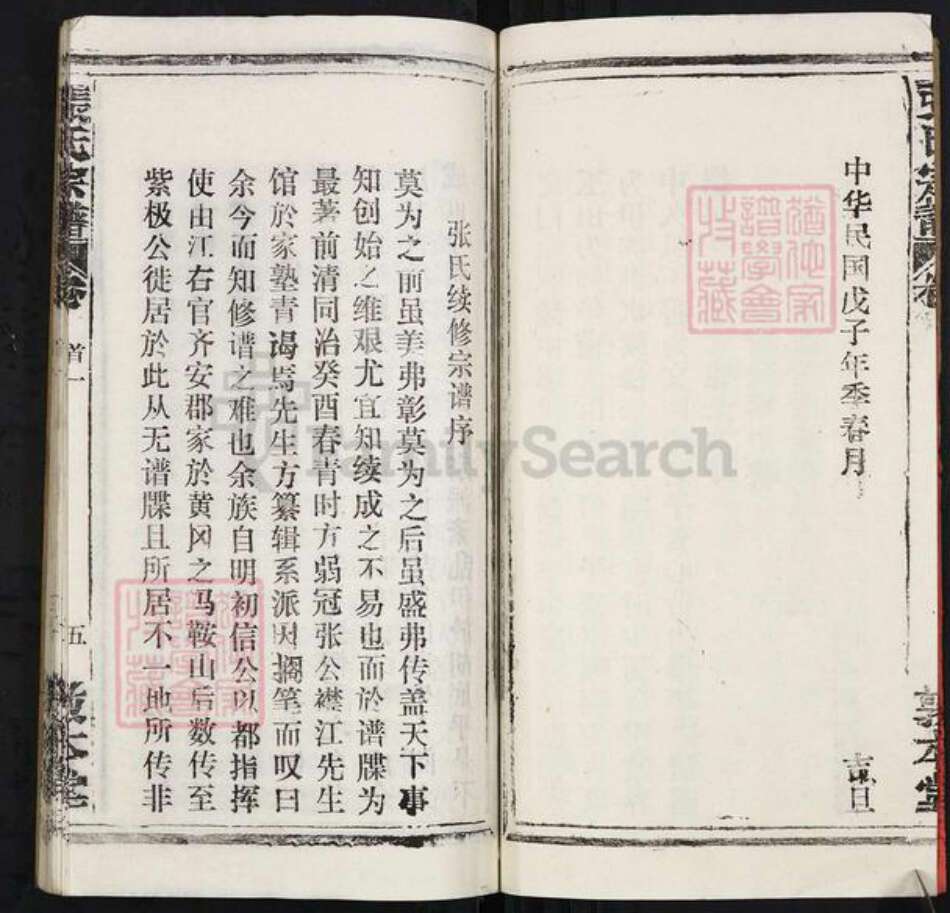 中华民国戊子年季春月
吉旦
张氏续修宗谱序
莫为之前虽美弗彰莫为之后虽盛弗传盖天下事
知创始之维艰尤宜知续成之不易也而於谱牒为
最著前清同治癸酉春青时方弱冠张公襟江先生
馆於家塾青谒焉先生方纂辑系派因搁笔而叹曰
余今而知修谱之难也余族自明初信公以都指挥
使由江右官齐安郡家於黄冈之马鞍山后数传至
紫极公徙居於此从无谱牒且所居不一地所传非
張氏宗譜
首一
五
敦本堂
FamilySearch
猶他家譜學會收藏
猶他家譜學會收藏